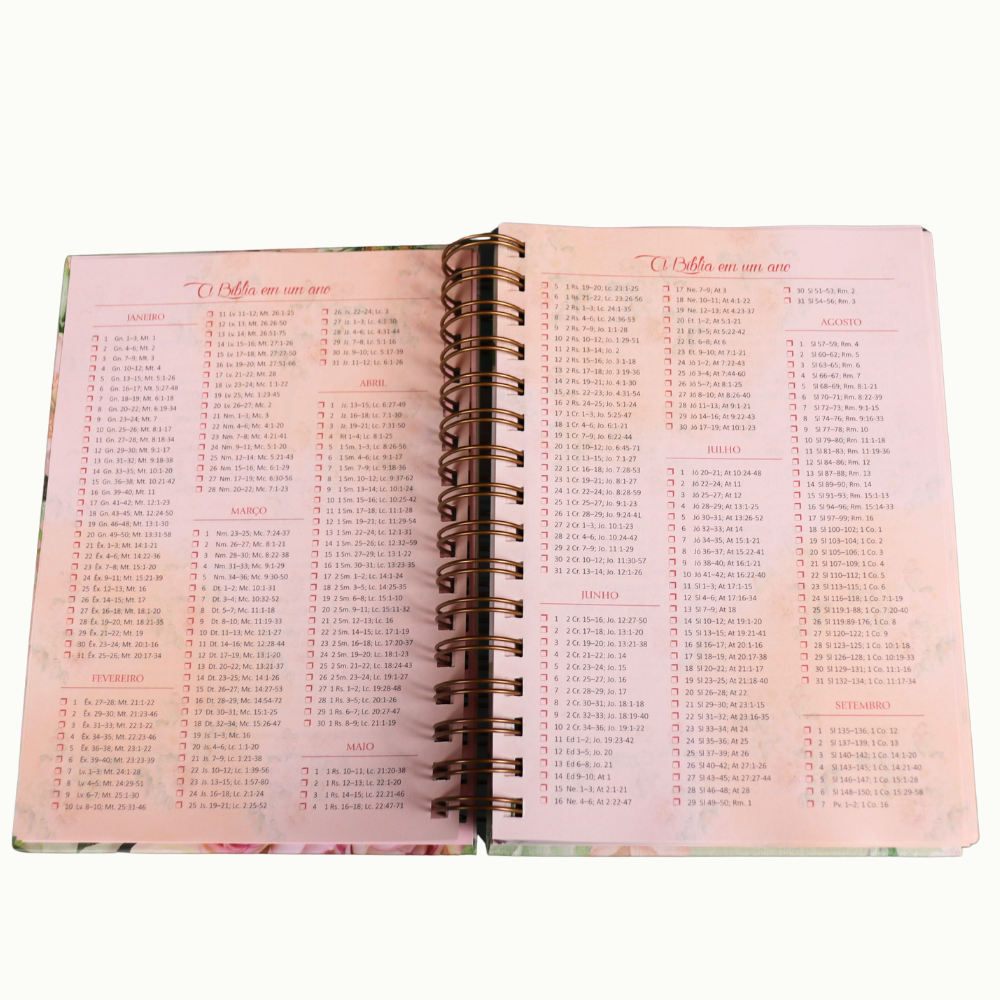 A Bíblia em um ano
JANEIRO
1 Gn. 1–3; Mt. 1
2 Gn. 4–6; Mt. 2
3 Gn. 7–9; Mt. 3
4 Gn. 10–12; Mt. 4
5 Gn. 13–15; Mt. 5:1-26
6 Gn. 16–17; Mt. 5:27-48
7 Gn. 18–19; Mt. 6:1-18
8 Gn. 20–22; Mt. 6:19-34
9 Gn. 23–24; Mt. 7
10 Gn. 25–26; Mt. 8:1-17
11 Gn. 27–28; Mt. 8:18-34
12 Gn. 29–30; Mt. 9:1-17
13 Gn. 31–32; Mt. 9:18-38
14 Gn. 33–35; Mt. 10:1-20
15 Gn. 36–38; Mt. 10:21-42
16 Gn. 39–40; Mt. 11
17 Gn. 41–42; Mt. 12:1-23
18 Gn. 43–45; Mt. 12:24-50
19 Gn. 46–48; Mt. 13:1-30
20 Gn. 49–50; Mt. 13:31-58
21 Êx. 1–3; Mt. 14:1-21
22 Êx. 4–6; Mt. 14:22-36
23 Êx. 7–8; Mt. 15:1-20
24 Êx. 9–11; Mt. 15:21-39
25 Êx. 12–13; Mt. 16
26 Êx. 14–15; Mt. 17
27 Êx. 16–18; Mt. 18:1-20
28 Êx. 19–20; Mt. 18:21-35
29 Êx. 21–22; Mt. 19
30 Êx. 23–24; Mt. 20:1-16
31 Êx. 25–26; Mt. 20:17-34
FEVEREIRO
1 Êx. 27–28; Mt. 21:1-22
2 Êx. 29–30; Mt. 21:23-46
3 Êx. 31–33; Mt. 22:1-22
4 Êx. 34–35; Mt. 22:23-46
5 Êx. 36–38; Mt. 23:1-22
6 Êx. 39–40; Mt. 23:23-39
7 Lv. 1–3; Mt. 24:1-28
8 Lv. 4–5; Mt. 24:29-51
9 Lv. 6–7; Mt. 25:1-30
10 Lv. 8–10; Mt. 25:31-46
11 Lv. 11–12; Mt. 26:1-25
12 Lv. 13; Mt. 26:26-50
13 Lv. 14; Mt. 26:51-75
14 Lv. 15–16; Mt. 27:1-26
15 Lv. 17–18; Mt. 27:27-50
16 Lv. 19–20; Mt. 27:51-66
17 Lv. 21–22; Mt. 28
18 Lv. 23–24; Mc. 1:1-22
19 Lv. 25; Mc. 1:23-45
20 Lv. 26–27; Mc. 2
21 Nm. 1–3; Mc. 3
22 Nm. 4–6; Mc. 4:1-20
23 Nm. 7–8; Mc. 4:21-41
24 Nm. 9–11; Mc. 5:1-20
25 Nm. 12–14; Mc. 5:21-43
26 Nm. 15–16; Mc. 6:1-29
27 Nm. 17–19; Mc. 6:30-56
28 Nm. 20–22; Mc. 7:1-23
MARÇO
1 Nm. 23–25; Mc. 7:24-37
2 Nm. 26–27; Mc. 8:1-21
3 Nm. 28–30; Mc. 8:22-38
4 Nm. 31–33; Mc. 9:1-29
5 Nm. 34–36; Mc. 9:30-50
6 Dt. 1–2; Mc. 10:1-31
7 Dt. 3–4; Mc. 10:32-52
8 Dt. 5–7; Mc. 11:1-18
9 Dt. 8–10; Mc. 11:19-33
10 Dt. 11–13; Mc. 12:1-27
11 Dt. 14–16; Mc. 12:28-44
12 Dt. 17–19; Mc. 13:1-20
13 Dt. 20–22; Mc. 13:21-37
14 Dt. 23–25; Mc. 14:1-26
15 Dt. 26–27; Mc. 14:27-53
16 Dt. 28–29; Mc. 14:54-72
17 Dt. 30–31; Mc. 15:1-25
18 Dt. 32–34; Mc. 15:26-47
19 Js. 1–3; Mc. 16
20 Js. 4–6; Lc. 1:1-20
21 Js. 7–9; Lc. 1:21-38
22 Js. 10–12; Lc. 1:39-56
23 Js. 13–15; Lc. 1:57-80
24 Js. 16–18; Lc. 2:1-24
25 Js. 19–21; Lc. 2:25-52
26 Js. 22–24; Lc. 3
27 Jz. 1–3; Lc. 4:1-30
28 Jz. 4–6; Lc. 4:31-44
29 Jz. 7–8; Lc. 5:1-16
30 Jz. 9–10; Lc. 5:17-39
31 Jz. 11–12; Lc. 6:1-26
ABRIL
1 Jz. 13–15; Lc. 6:27-49
2 Jz. 16–18; Lc. 7:1-30
3 Jz. 19–21; Lc. 7:31-50
4 Rt 1–4; Lc. 8:1-25
5 1 Sm. 1–3; Lc. 8:26-56
6 1 Sm. 4–6; Lc. 9:1-17
7 1 Sm. 7–9; Lc. 9:18-36
8 1 Sm. 10–12; Lc. 9:37-62
9 1 Sm. 13–14; Lc. 10:1-24
10 1 Sm. 15–16; Lc. 10:25-42
11 1 Sm. 17–18; Lc. 11:1-28
12 1 Sm. 19–21; Lc. 11:29-54
13 1 Sm. 22–24; Lc. 12:1-31
14 1 Sm. 25–26; Lc. 12:32-59
15 1 Sm. 27–29; Lc. 13:1-22
16 1 Sm. 30–31; Lc. 13:23-35
17 2 Sm. 1–2; Lc. 14:1-24
18 2 Sm. 3–5; Lc. 14:25-35
19 2 Sm. 6–8; Lc. 15:1-10
20 2 Sm. 9–11; Lc. 15:11-32
21 2 Sm. 12–13; Lc. 16
22 2 Sm. 14–15; Lc. 17:1-19
23 2 Sm. 16–18; Lc. 17:20-37
24 2 Sm. 19–20; Lc. 18:1-23
25 2 Sm. 21–22; Lc. 18:24-43
26 2 Sm. 23–24; Lc. 19:1-27
27 1 Rs. 1–2; Lc. 19:28-48
28 1 Rs. 3–5; Lc. 20:1-26
29 1 Rs. 6–7; Lc. 20:27-47
30 1 Rs. 8–9; Lc. 21:1-19
MAIO
1 1 Rs. 10–11; Lc. 21:20-38
2 1 Rs. 12–13; Lc. 22:1-20
3 1 Rs. 14–15; Lc. 22:21-46
4 1 Rs. 16–18; Lc. 22:47-71
A Bíblia em um ano
5 1 Rs. 19–20; Lc. 23:1-25
6 1 Rs. 21–22; Lc. 23:26-56
7 2 Rs. 1–3; Lc. 24:1-35
8 2 Rs. 4–6; Lc. 24:36-53
9 2 Rs. 7–9; Jo. 1:1-28
10 2 Rs. 10–12; Jo. 1:29-51
11 2 Rs. 13–14; Jo. 2
12 2 Rs. 15–16; Jo. 3:1-18
13 2 Rs. 17–18; Jo. 3:19-36
14 2 Rs. 19–21; Jo. 4:1-30
15 2 Rs. 22–23; Jo. 4:31-54
16 2 Rs. 24–25; Jo. 5:1-24
17 1 Cr. 1–3; Jo. 5:25-47
18 1 Cr. 4–6; Jo. 6:1-21
19 1 Cr. 7–9; Jo. 6:22-44
20 1 Cr. 10–12; Jo. 6:45-71
21 1 Cr. 13–15; Jo. 7:1-27
22 1 Cr. 16–18; Jo. 7:28-53
23 1 Cr. 19–21; Jo. 8:1-27
24 1 Cr. 22–24; Jo. 8:28-59
25 1 Cr. 25–27; Jo. 9:1-23
26 1 Cr. 28–29; Jo. 9:24-41
27 2 Cr. 1–3; Jo. 10:1-23
28 2 Cr. 4–6; Jo. 10:24-42
29 2 Cr. 7–9; Jo. 11:1-29
30 2 Cr. 10–12; Jo. 11:30-57
31 2 Cr. 13–14; Jo. 12:1-26
JUNHO
1 2 Cr. 15–16; Jo. 12:27-50
2 2 Cr. 17–18; Jo. 13:1-20
3 2 Cr. 19–20; Jo. 13:21-38
4 2 Cr. 21–22; Jo. 14
5 2 Cr. 23–24; Jo. 15
6 2 Cr. 25–27; Jo. 16
7 2 Cr. 28–29; Jo. 17
8 2 Cr. 30–31; Jo. 18:1-18
9 2 Cr. 32–33; Jo. 18:19-40
10 2 Cr. 34–36; Jo. 19:1-22
11 Ed 1–2; Jo. 19:23-42
12 Ed 3–5; Jo. 20
13 Ed 6–8; Jo. 21
14 Ed 9–10; At 1
15 Ne. 1–3; At 2:1-21
16 Ne. 4–6; At 2:22-47
17 Ne. 7–9; At 3
18 Ne. 10–11; At 4:1-22
19 Ne. 12–13; At 4:23-37
20 Et. 1–2; At 5:1-21
21 Et. 3–5; At 5:22-42
22 Et. 6–8; At 6
23 Et. 9–10; At 7:1-21
24 Jó 1–2; At 7:22-43
25 Jó 3–4; At 7:44-60
26 Jó 5–7; At 8:1-25
27 Jó 8–10; At 8:26-40
28 Jó 11–13; At 9:1-21
29 Jó 14–16; At 9:22-43
30 Jó 17–19; At 10:1-23
JULHO
1 Jó 20–21; At 10:24-48
2 Jó 22–24; At 11
3 Jó 25–27; At 12
4 Jó 28–29; At 13:1-25
5 Jó 30–31; At 13:26-52
6 Jó 32–33; At 14
7 Jó 34–35; At 15:1-21
8 Jó 36–37; At 15:22-41
9 Jó 38–40; At 16:1-21
10 Jó 41–42; At 16:22-40
11 Sl 1–3; At 17:1-15
12 Sl 4–6; At 17:16-34
13 Sl 7–9; At 18
14 Sl 10–12; At 19:1-20
15 Sl 13–15; At 19:21-41
16 Sl 16–17; At 20:1-16
17 Sl 18–19; At 20:17-38
18 Sl 20–22; At 21:1-17
19 Sl 23–25; At 21:18-40
20 Sl 26–28; At 22
21 Sl 29–30; At 23:1-15
22 Sl 31–32; At 23:16-35
23 Sl 33–34; At 24
24 Sl 35–36; At 25
25 Sl 37–39; At 26
26 Sl 40–42; At 27:1-26
27 Sl 43–45; At 27:27-44
28 Sl 46–48; At 28
29 Sl 49–50; Rm. 1
30 Sl 51–53; Rm. 2
31 Sl 54–56; Rm. 3
AGOSTO
1 Sl 57–59; Rm. 4
2 Sl 60–62; Rm. 5
3 Sl 63–65; Rm. 6
4 Sl 66–67; Rm. 7
5 Sl 68–69; Rm. 8:1-21
6 Sl 70–71; Rm. 8:22-39
7 Sl 72–73; Rm. 9:1-15
8 Sl 74–76; Rm. 9:16-33
9 Sl 77–78; Rm. 10
10 Sl 79–80; Rm. 11:1-18
11 Sl 81–83; Rm. 11:19-36
12 Sl 84–86; Rm. 12
13 Sl 87–88; Rm. 13
14 Sl 89–90; Rm. 14
15 Sl 91–93; Rm. 15:1-13
16 Sl 94–96; Rm. 15:14-33
17 Sl 97–99; Rm. 16
18 Sl 100–102; 1 Co. 1
19 Sl 103–104; 1 Co. 2
20 Sl 105–106; 1 Co. 3
21 Sl 107–109; 1 Co. 4
22 Sl 110–112; 1 Co. 5
23 Sl 113–115; 1 Co. 6
24 Sl 116–118; 1 Co. 7:1-19
25 Sl 119:1-88; 1 Co. 7:20-40
26 Sl 119:89-176; 1 Co. 8
27 Sl 120–122; 1 Co. 9
28 Sl 123–125; 1 Co. 10:1-18
29 Sl 126–128; 1 Co. 10:19-33
30 Sl 129–131; 1 Co. 11:1-16
31 Sl 132–134; 1 Co. 11:17-34
SETEMBRO
1 Sl 135–136; 1 Co. 12
2 Sl 137–139; 1 Co. 13
3 Sl 140–142; 1 Co. 14:1-20
4 Sl 143–145; 1 Co. 14:21-40
5 Sl 146–147; 1 Co. 15:1-28
6 Sl 148–150; 1 Co. 15:29-58
7 Pv. 1–2; 1 Co. 16